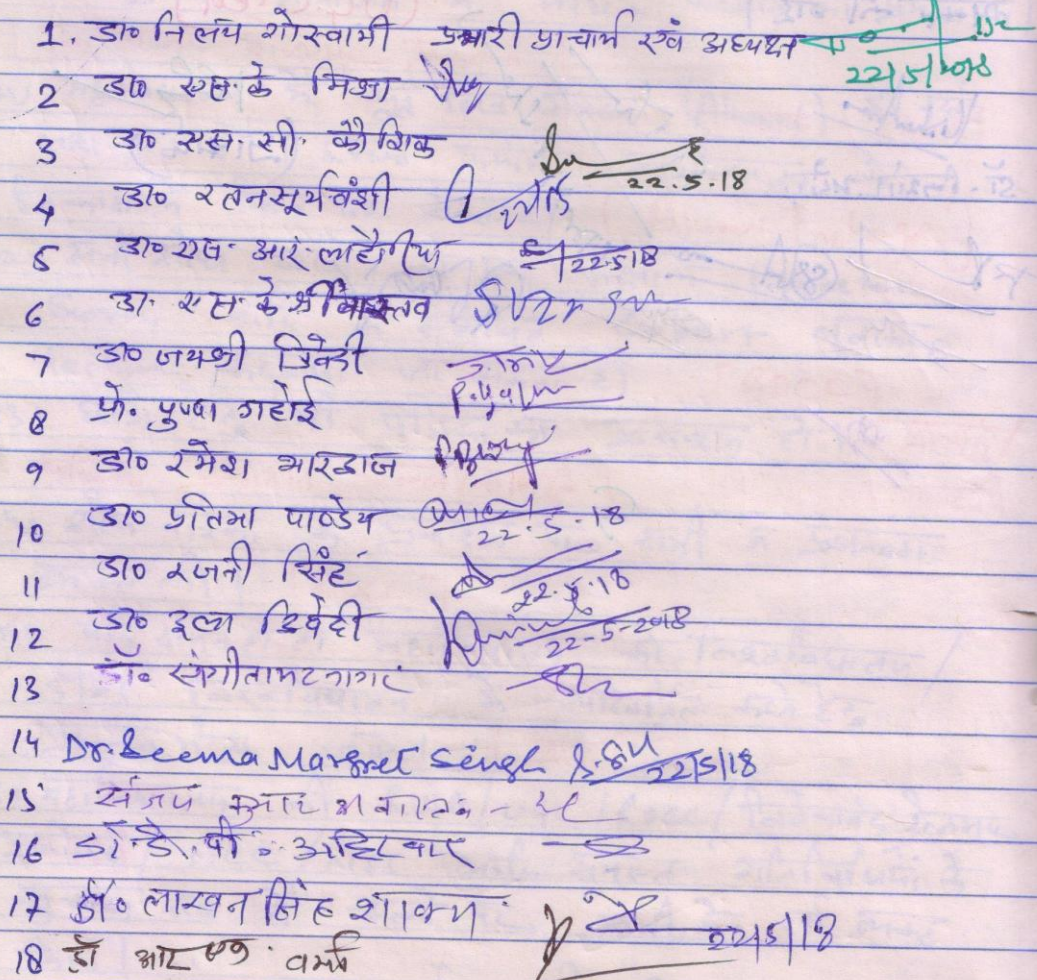 1. डा० निलय गोस्वामी प्रभारी प्राचार्य एवं अध्यक्ष
22/5/2018
2 डा० एस. के मिश्रा
3 डा० एस. सी. कौशिक
22.5.18
4 डा० रतनसूर्यवंशी
5 डा० एल. आर. लाहौरिया 22.5.18
6 डा. एस. के. श्रीवास्तव
7 डा० जयश्री त्रिवेदी
8 प्रो. पुष्पा गहोई
9 डा० रमेश भारद्वाज
10 डा० प्रतिमा पाण्डेय
22.5.18
11 डा० रजनी सिंह
22.5.18
12 डा० इला द्विवेदी
22-5-2018
13 डॉ० संगीता भटनागर
14 Dr. Seema Margret Singh 22/5/18
15 संजय
16 डॉ. डी. पी. अहिरवार
17 डॉ० लाखन सिंह शाक्य
22/5/18
18 डॉ आर एस. वर्मा